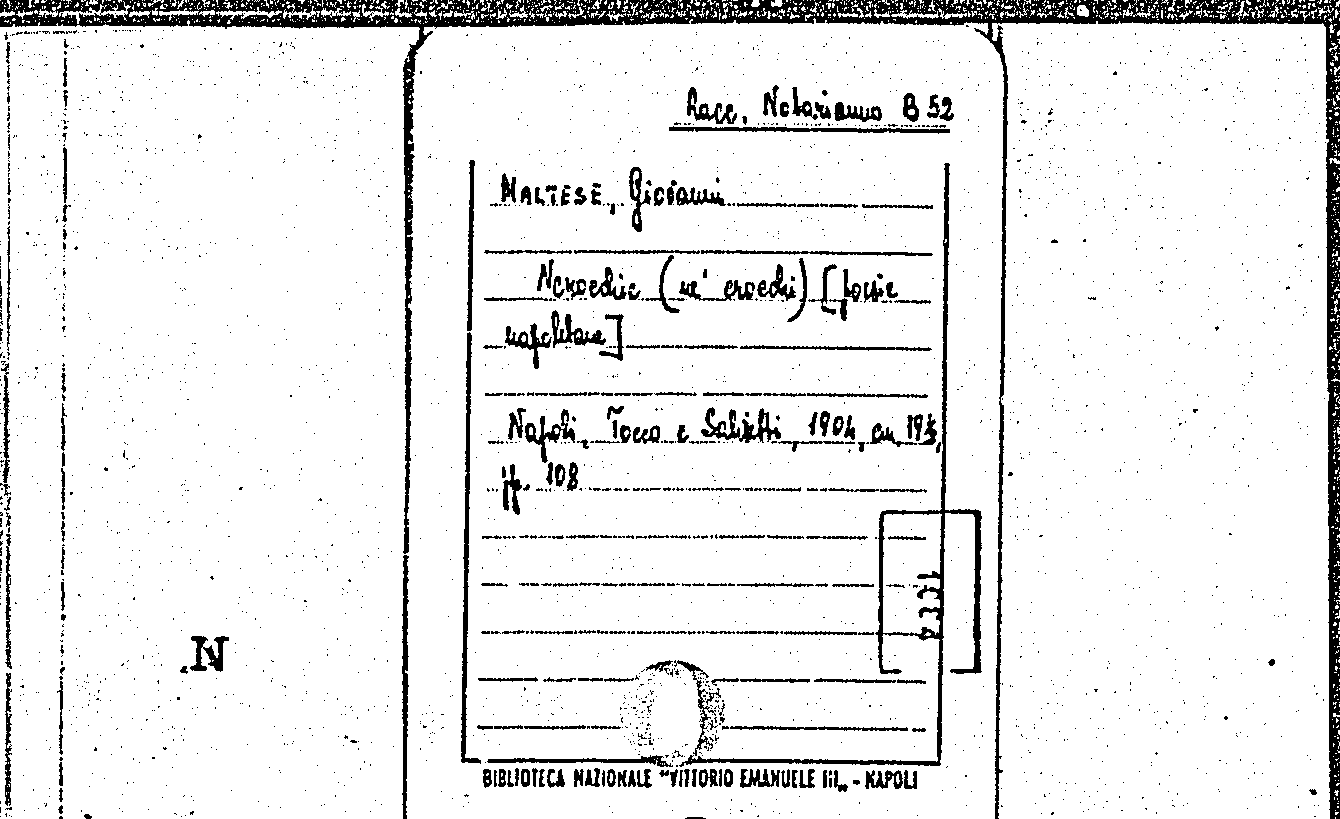 Racc. Notarianno B 52
MALTESE, Giovanni
Ncrocchie (nc' crocchi) [poesie
napoletane]
Napoli, Tocco e Salvietti, 1904, cm. 19½,
pp. 108
N.
BIBLIOTECA NAZIONALE "VITTORIO EMANUELE III„ - NAPOLI